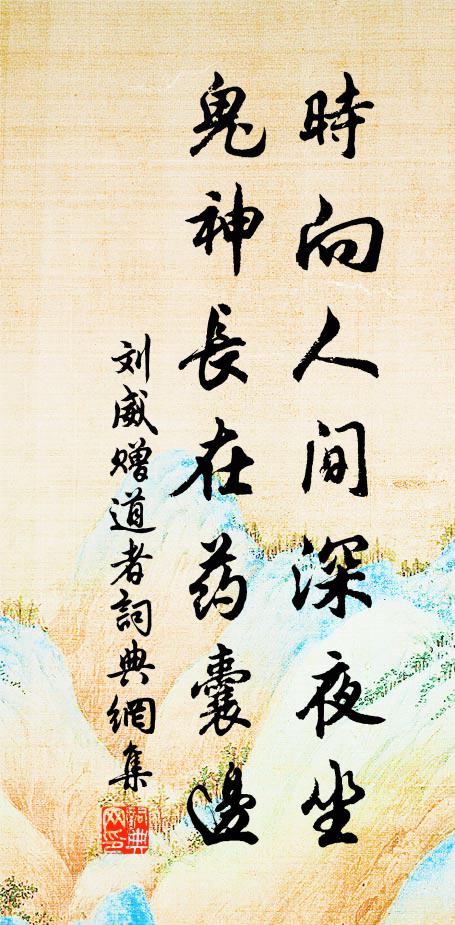 時向人间深夜坐
鬼神長在药囊邊
刘威赠道者詞典網集